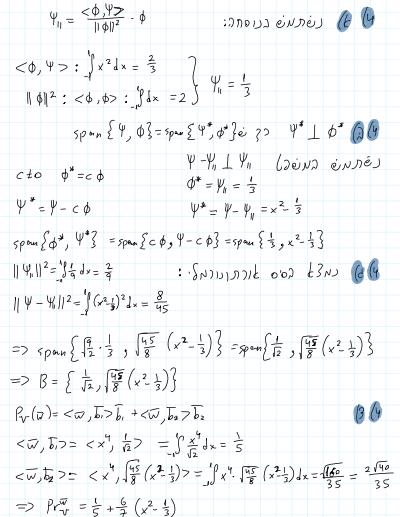 4 א נשתמש בנוסחה: Ψ_∥ = <Φ,Ψ> / ||Φ||² · Φ
<Φ, Ψ> : ₋₁∫¹ x² dx = 2/3
||Φ||² : <Φ,Φ> : ₋₁∫¹ dx = 2 } Ψ_∥ = 1/3
4 Ψ* ⊥ Φ* כך ש span{Ψ, Φ} = span{Ψ*, Φ*}
נשתמש במשפט Ψ - Ψ_∥ ⊥ Ψ_∥
c≠0 Φ* = cΦ Φ* = Ψ_∥ = 1/3
Ψ* = Ψ - cΦ Ψ* = Ψ - Ψ_∥ = x² - 1/3
span{Φ*, Ψ*} = span{cΦ, Ψ - cΦ} = span{1/3, x² - 1/3}
4 נמצא בסיס אורתונורמלי:
||Ψ_∥||² = ₋₁∫¹ 1/9 dx = 2/9
||Ψ - Ψ_∥||² = ₋₁∫¹ (x² - 1/3)² dx = 8/45
=> span{√(9/2) · 1/3, √(45/8) (x² - 1/3)} = span{1/√2, √(45/8) (x² - 1/3)}
=> B = {1/√2, √(45/8) (x² - 1/3)}
4 P_V(w̄) = <w̄, b̄₁> b̄₁ + <w̄, b̄₂> b̄₂
<w̄, b̄₁> = <x⁴, 1/√2> = ₋₁∫¹ x⁴/√2 dx = 1/5
<w̄, b̄₂> = <x⁴, √(45/8) (x² - 1/3)> = ₋₁∫¹ x⁴ · √(45/8) (x² - 1/3) dx = √160/35 = 2√40/35
=> P_V w̄ = 1/5 + 6/7 (x² - 1/3)